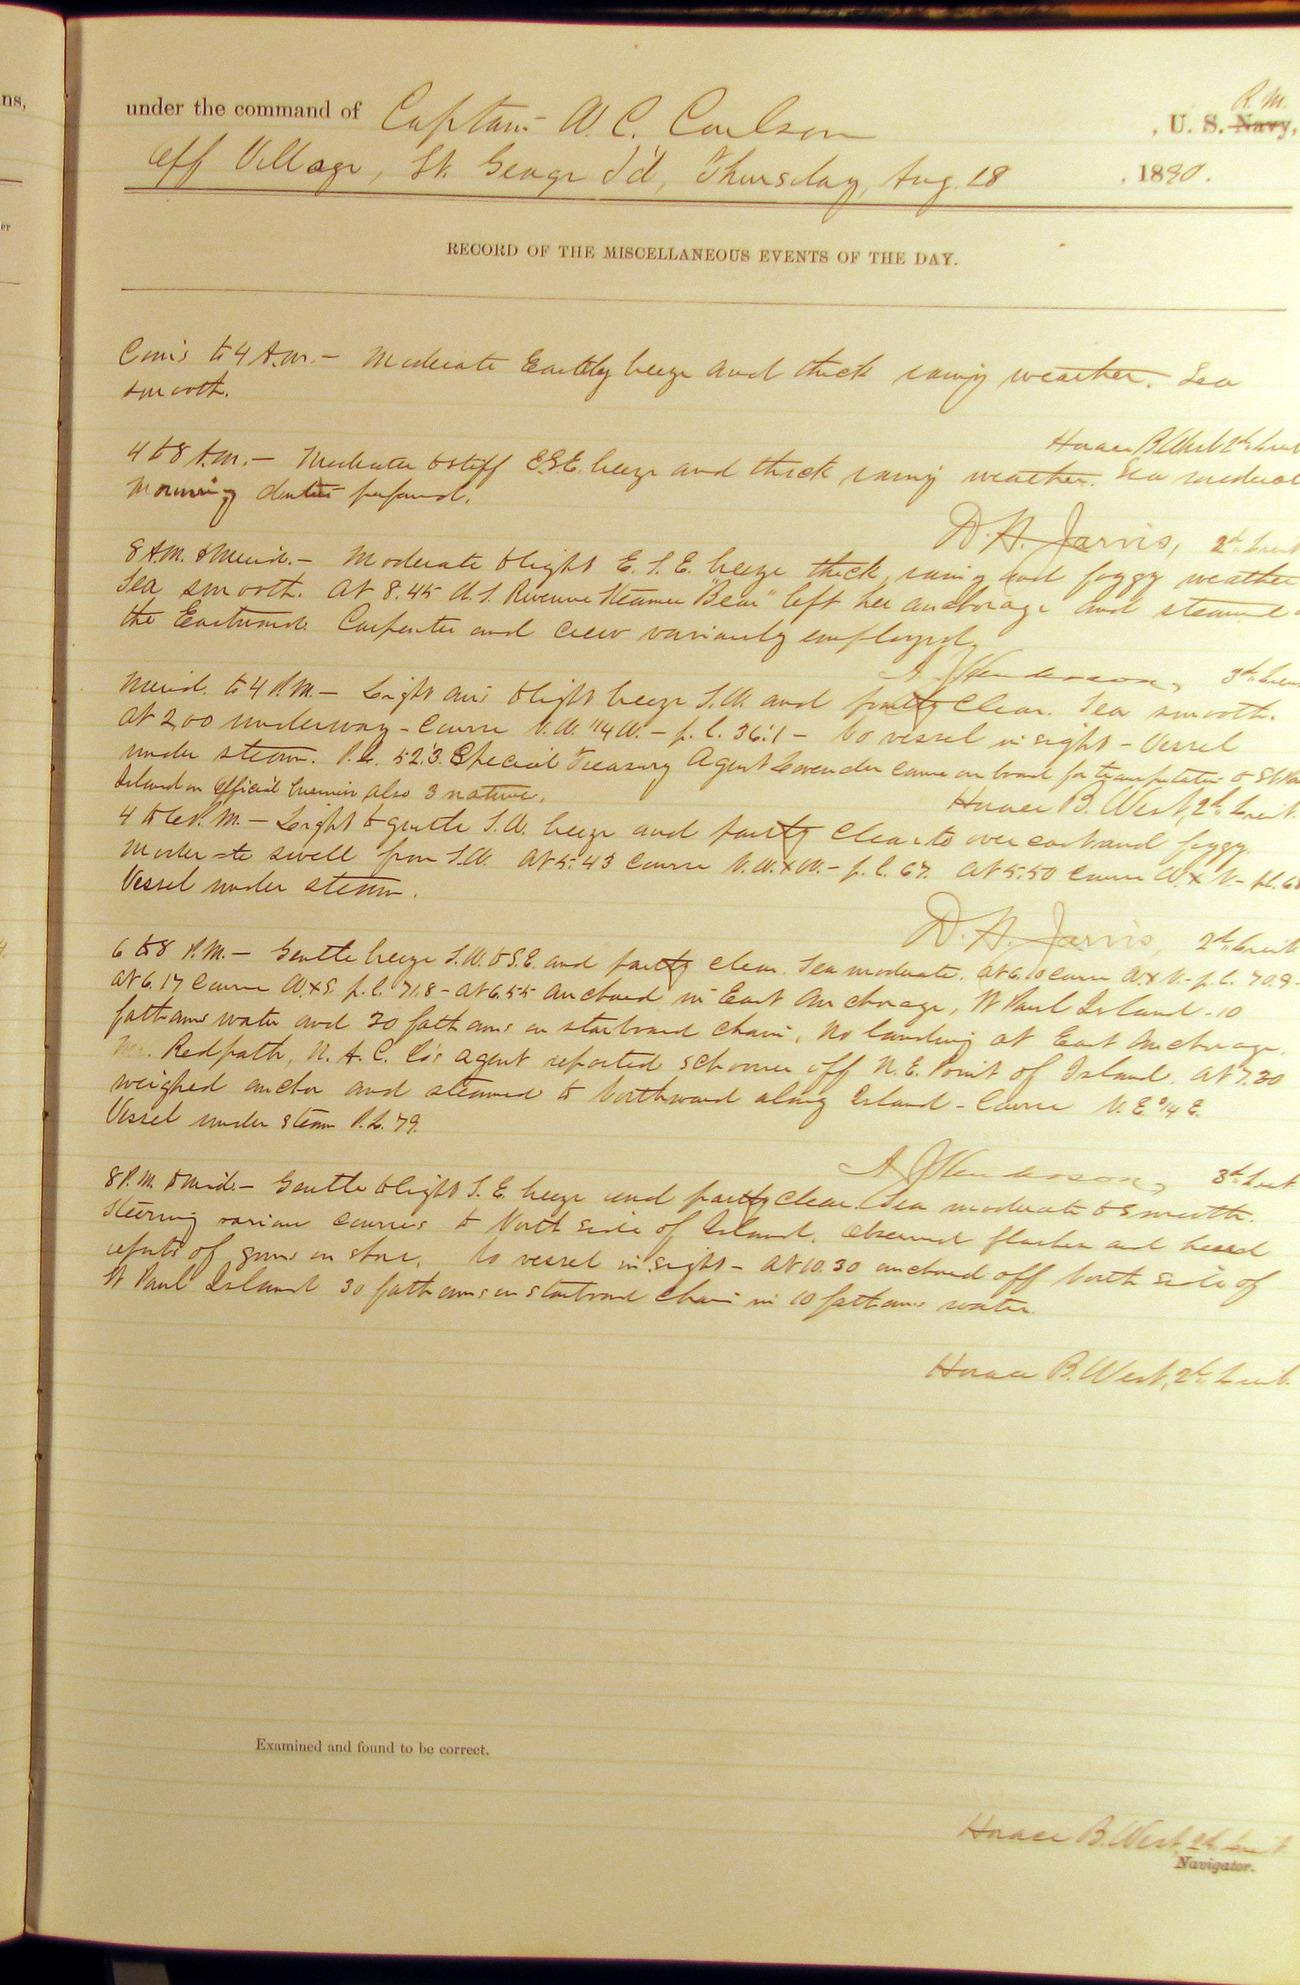 ns,
er
under the command of Captain W. C. Coulson , U. S. Navy, R. M.
Off Village, St. George I'd, Thursday, Aug. 28 , 1890.
RECORD OF THE MISCELLANEOUS EVENTS OF THE DAY.
Com's to 4 A.M. — Moderate Eastly breeze and thick rainy weather. Sea
smooth.
Horace B. West 2d Lieut
4 to 8 A.M. — Moderate to stiff E.S.E. breeze and thick rainy weather. Sea moderate
Morning duties performed.
D. H. Jarvis, 2d Lieut
8 A.M. to Merid. — Moderate to light E. S. E. breeze thick, rainy and foggy weather
Sea smooth. At 8.45 U.S. Revenue Steamer "Bear" left her anchorage and steamed
the Eastward. Carpenter and crew variously employed.
Henderson, 3d Lieut
Merid. to 4 P.M. — Light airs to light breeze S.W. and partly clear. Sea smooth.
At 2.00 underway - Course N.W. 1/4 W. — p. l. 36.1 — No vessel in sight — Vessel
under steam. P.L. 52.3. Special Treasury Agent Lavender came on board for transportation to St Paul
Island on Official business also 3 natives.
Horace B. West, 2d Lieut.
4 to 6 P.M. — Light to gentle S.W. breeze and partly clear to overcast and foggy.
Moderate swell from S.W. At 5.43 Course N.W. x W. — p. l. 67. At 5.50 Course W. x N. — p.l. 68
Vessel under steam.
D. H. Jarvis, 2d Lieut
6 to 8 P.M. — Gentle breeze S.W. to S.E. and partly clear. Sea moderate. At 6.10 course W. x N. — p. l. 70.9 —
At 6.17 Course W. x S. p. l. 71.8 — At 6.55 anchored in East Anchorage, St Paul Island — 10
fathoms water and 30 fathoms on starboard chain, No landing at East Anchorage.
Mr. Redpath, N. A. C. Co's agent reported schooner off N. E. Point of Island. At 7.30
weighed anchor and steamed to Northward along Island — Course N. E. 3/4 E.
Vessel under steam P.L. 79.
Henderson, 3d Lieut
8 P.M. to Mid. — Gentle to light S. E. breeze and partly clear. Sea moderate to smooth.
Steering various courses to North side of Island. Observed flashes and heard
reports of guns on shore. No vessel in sight — At 10.30 anchored off North side of
St Paul Island 30 fathoms on starboard chain in 10 fathoms water.
Horace B. West, 2d Lieut.
Examined and found to be correct.
Horace B. West, 2d Lieut
Navigator.